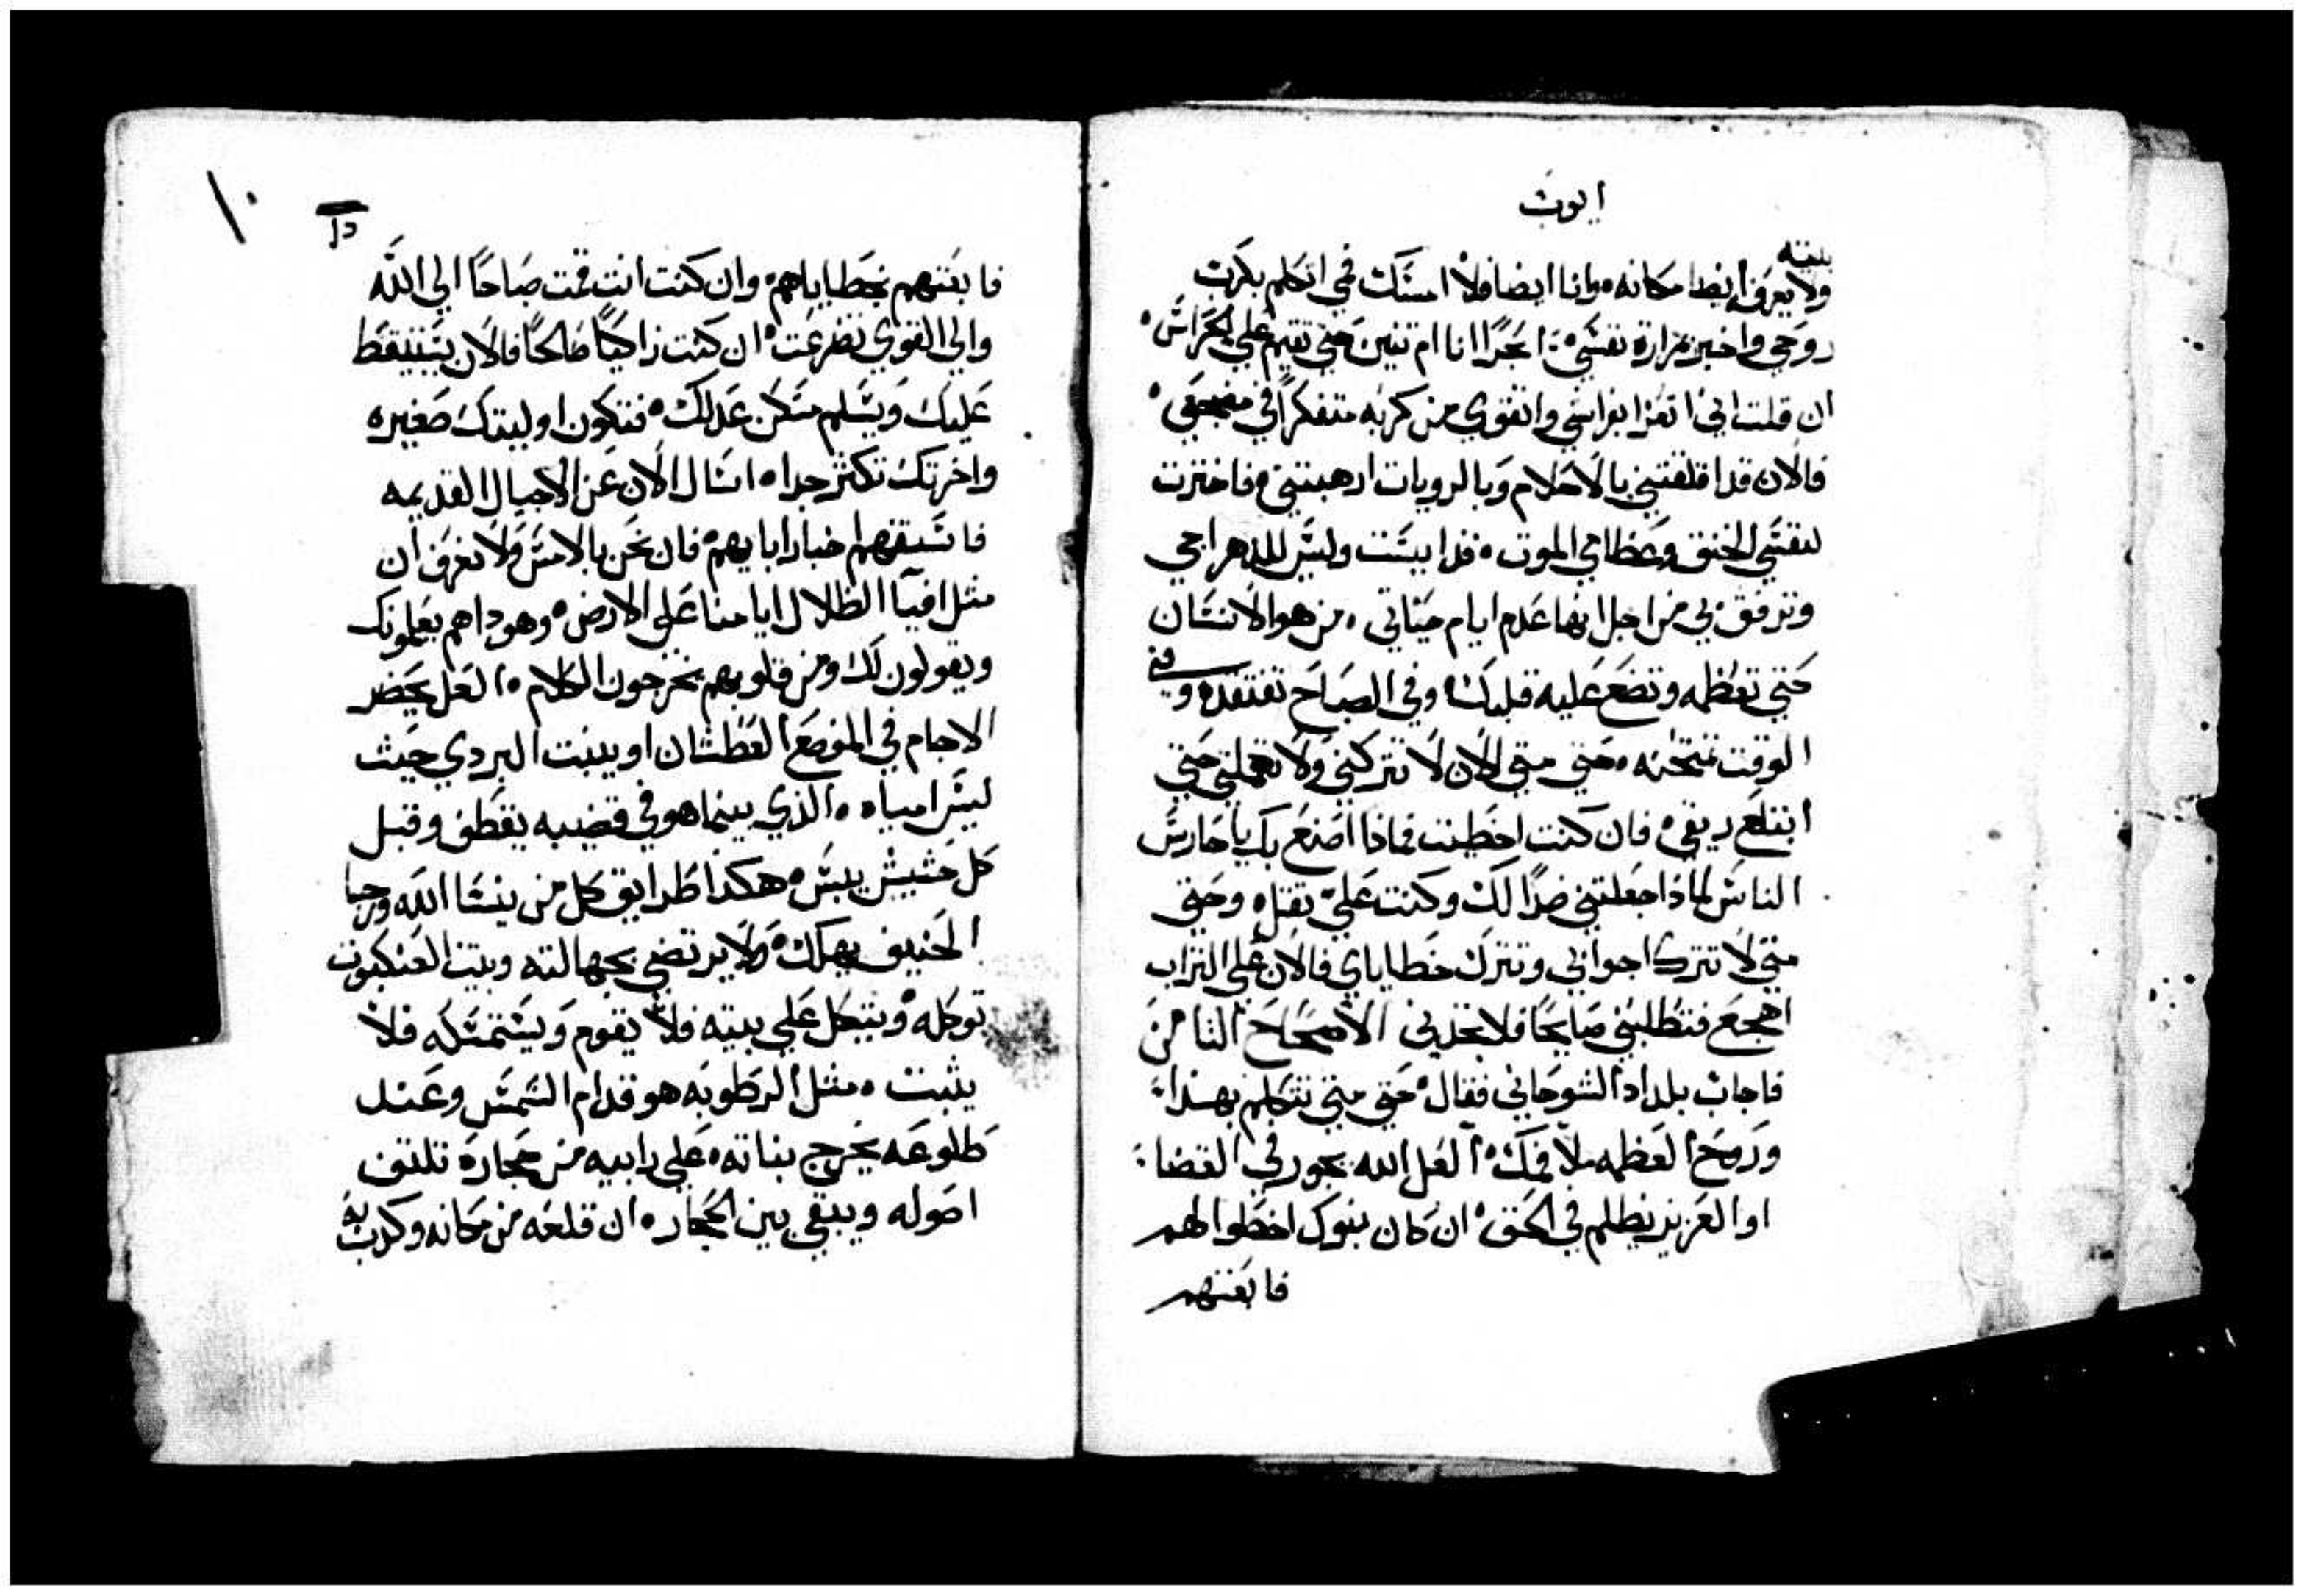 ايوب
بيته
ولا يعرف ايضا مكانه وانا ايضا فلا امسك فمي اتكلم بكرب
روحي واخبر بمرارة نفسي ابحرا انا ام تنين حتي تقيم علي الحراس
ان قلت اني اتعزا بفراشي واتقوي من كربه متفكرا في مضجعي
فالان قد اقلقتني بالاحلام وبالرويات ارهبتني فاختارت
نفسي الخنق وعظامي الموت قد ايست وليس للدهر احي
وترفق بي من اجل انها عدم ايام حياتي من هو الانسان
حتي تعظمه وتضع عليه قلبك وفي الصباح تفتقده وفي
الوقت تمتحنه حتي متي الان لا تتركني ولا تهملني حتي
ابتلع ريقي فان كنت اخطيت فماذا اصنع بك يا حارس
الناس لماذا جعلتني ضدا لك وكنت علي تقله وحتي
متي لا تترك اجوابي وتترك خطاياي فالان علي التراب
اهجع فتطلبني صابحا فلا تجدني الاصحاح الثامن
فاجاب بلداد الشوحاني فقال حتي متي تتكلم بهدا
وروح العظمه ملا فمك العل الله يجور في القضا
او العزيز يظلم في الحق ان كان بنوك اخطوا لهم
فابعتهم
١٠
فابعتهم بخطاياهم وان كنت انت قمت صباحا الي الله
والي القوي تضرعت ان كنت زاكيا صالحا فالان يستيقظ
عليك ويسلم مسكن عدلك فتكون اوليتك صغيره
واخرتك تكثر جدا اسال الان عن الاجيال القديمه
فاستقهم اخبار ابايهم فان نحن بالامس ولا نعرف ان
مثل افيا الظلال ايامنا علي الارض وهوداهم يعلمونك
ويقولون لك ومن قلوبهم يخرجون الكلام العل يخضر
الاجام في الموضع العطشان او يينبت البردي حيث
ليس امياه الذي بينما هو في قضيبه يقطف وقبل
كل حشيش ييبس هكذا طرايق كل من ينسا الله ورجا
الحنيف يهلك ولا يرتضي بجهالته وبيت العنكبوت
توكله ويتكل علي بيته فلا يقوم ويستمسكه فلا
يثبت مثل الرطوبه هو قدام الشمس وعند
طلوعه يخرج بناته علي رابيه من حجارة تلتف
اصوله ويبقي بين الحجاره ان قلعه من مكانه وكرب به